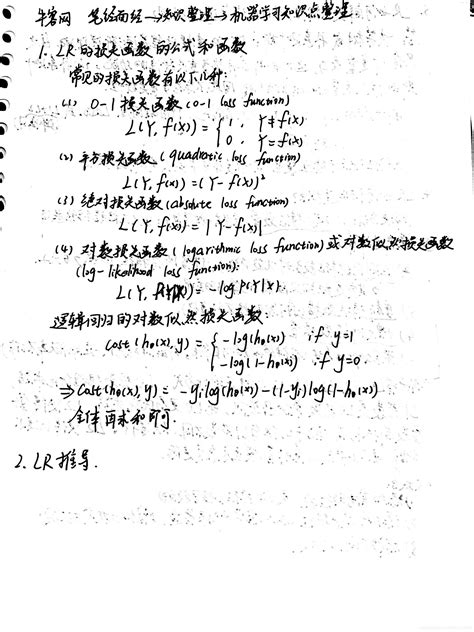 牛客网 笔经面经→知识整理→机器学习知识点整理
1. LR的损失函数的公式和函数
常见的损失函数有以下几种:
(1) 0-1损失函数 (0-1 loss function)
L(Y, f(x)) = { 1, Y≠f(x)
0, Y=f(x)
(2) 平方损失函数 (quadratic loss function)
L(Y, f(x)) = (Y-f(x))²
(3) 绝对损失函数 (absolute loss function)
L(Y, f(x)) = |Y-f(x)|
(4) 对数损失函数 (logarithmic loss function) 或对数似然损失函数
(log-likelihood loss function):
L(Y, P(Y|X)) = -log P(Y|X)
逻辑回归的对数似然损失函数:
cost(hθ(x), y) = { -log(hθ(x)) if y=1
-log(1-hθ(x)) if y=0
⇒ Cost(hθ(x), y) = -yᵢlog(hθ(x)) - (1-yᵢ)log(1-hθ(x))
全体再求和即可.
2. LR推导.